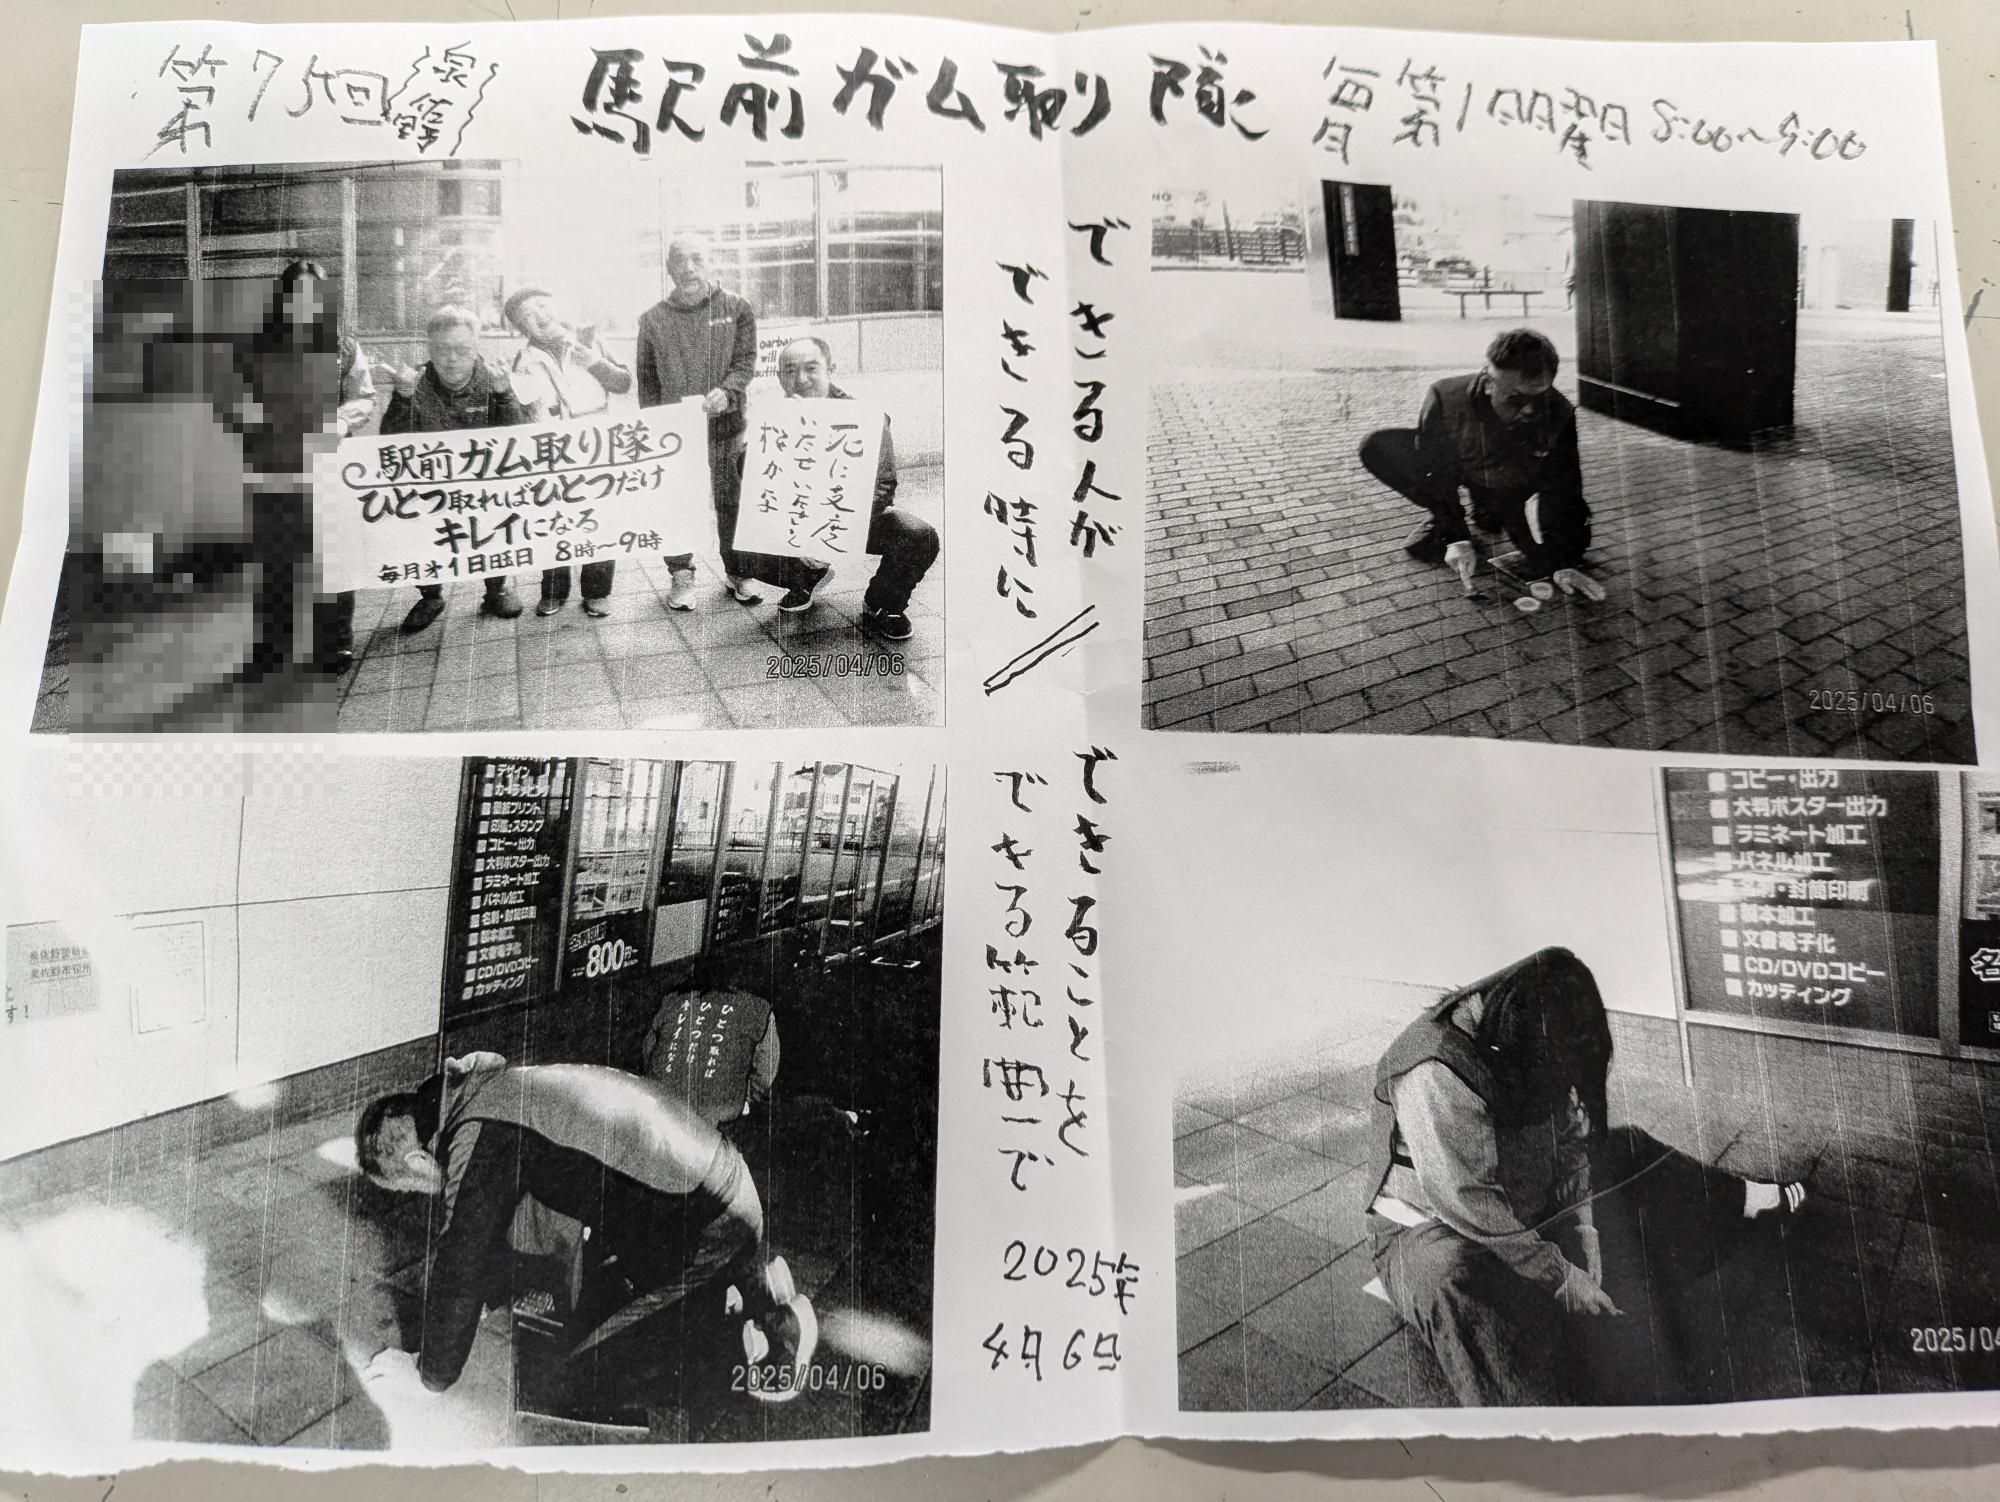 第75回
泉佐野
駅前ガム取り隊
毎月第1日曜日8:00〜9:00
駅前ガム取り隊
ひとつ取ればひとつだけ
キレイになる
毎月才1日曜日 8時〜9時
死に支度
いたせいたせと
桜かな
garba
will
2025/04/06
できる人が
できる時に
2025/04/06
できることを
できる範囲で
2025年
4月6日
デザイン
印鑑・スタンプ
コピー・出力
大判ポスター出力
ラミネート加工
パネル加工
名刺・封筒印刷
製本加工
文書電子化
CD/DVDコピー
カッティング
800円
泉佐野警察
泉佐野市役所
と
す!
ひとつ取れば
ひとつだけ
キレイになる
2025/04/06
コピー・出力
大判ポスター出力
ラミネート加工
パネル加工
名刺・封筒印刷
製本加工
文書電子化
CD/DVDコピー
カッティング
名
2025/04